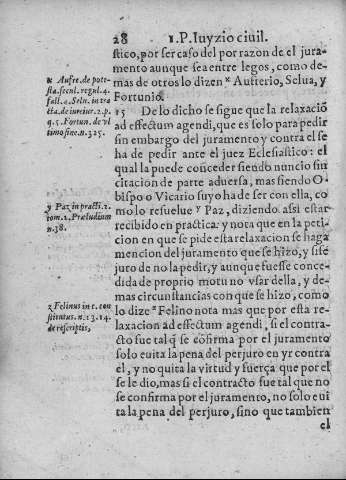 28 1.P. Iuyzio ciuil.
stico, por ser caso del por razon de el jura-
mento aunque sea entre legos, como de-
mas de otros lo dizen x Aufrerio, Selua, y
Fortunio.
x Aufre. de pote-
sta. secul. regul. 4.
fall. 4. Selu. in tra
cta. de iureiur. 2. p.
q. 5. Fortun. de vl
timo fine. n. 325.
15 De lo dicho se sigue que la relaxaciõ
ad effectum agendi, que es solo para pedir
sin embargo del juramento y contra el se
ha de pedir ante el juez Eclesiastico: el
qual la puede conceder siendo nuncio sin
citacion de parte aduersa, mas siendo O-
bispo o Vicario suyo ha de ser con ella, co
mo lo resuelue y Paz, diziendo assi estar
recibido en practica: y nota que en la peti-
cion en que se pide esta relaxacion se haga
mencion del juramento que se hizo, y si se
juro de no la pedir, y aunque fuesse conce-
dida de proprio motu no vsar della, y de-
mas circunstancias con que se hizo, como
lo dize z Felino nota mas que por esta re-
laxacion ad effectum agendi, si el contra-
cto fue tal q̃ se confirma por el juramento
solo euita la pena del perjuro en yr contra
el, y no quita la virtud y fuerça que por el
se le dio, mas si el contracto fue tal que no
se confirma por el juramento, no solo eui
ta la pena del perjuro, sino que tambien
el
y Paz in practi. 1.
tom. 2. Præludium
n. 38.
z Felinus in c. con
stitutus. n. 13. 14.
de rescriptis,